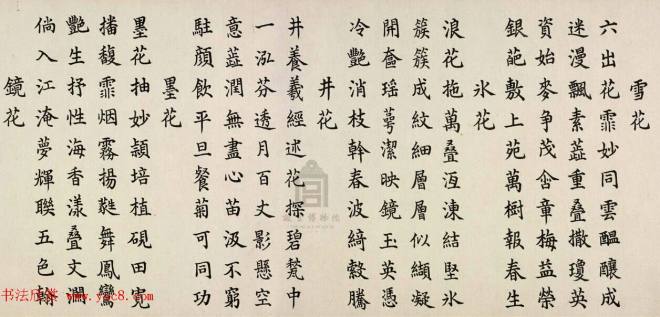 雪花
六出花霏妙同雲醞釀成
迷漫飄素蕋重叠撒瓊英
資始麥爭茂含章梅益榮
銀葩敷上苑萬樹報春生
氷花
浪花拖萬叠沍凍結堅氷
簇簇成紋細層層似纈凝
開奩瑶萼潔映鏡玉英憑
冷艷消枝幹春波綺縠騰
井花
井養羲經述花探碧甃中
一泓芬透月百丈影懸空
意蕋潤無盡心苗汲不窮
駐顔飲平旦餐菊可同功
墨花
墨花抽妙頴培植硯田寛
播馥霏烟霧揚葩舞鳳鸞
艷生抒性海香漾叠文瀾
倘入江淹夢輝聯五色翰
鏡花
书法欣赏 www.yac8.com